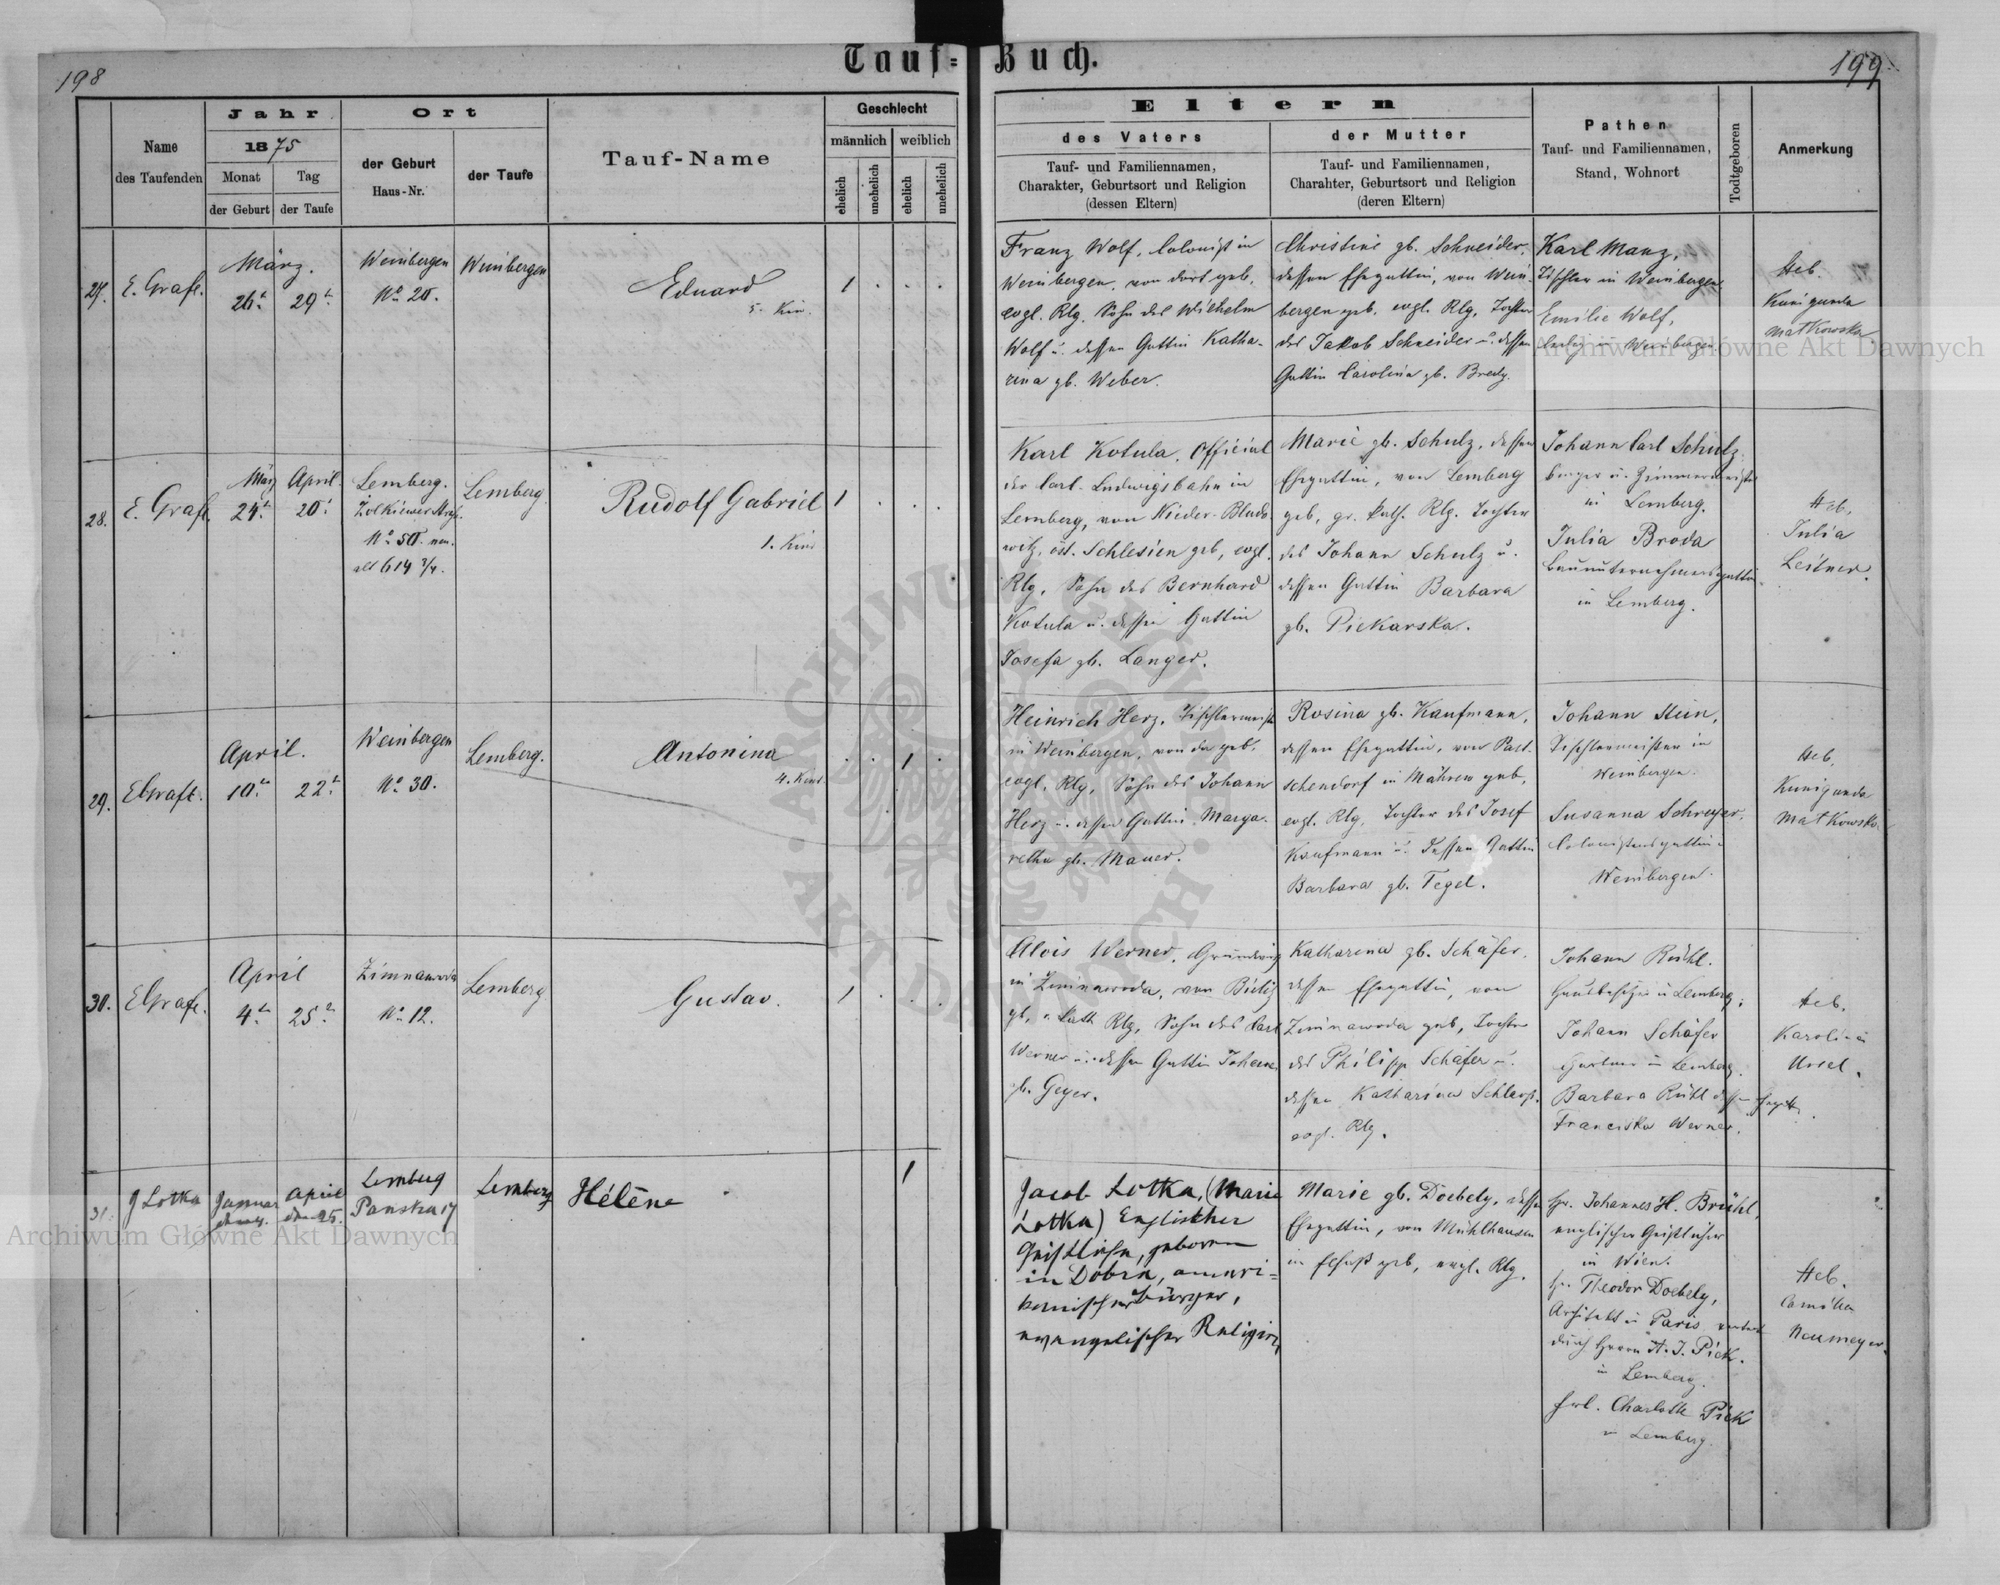 198
Tauf=Buch.
199.
Name
des Taufenden
Jahr
1875
Monat
Tag
der Geburt
der Taufe
Ort
der Geburt
Haus-Nr.
der Taufe
Tauf-Name
Geschlecht
männlich
weiblich
ehelich
unehelich
ehelich
unehelich
Eltern
des Vaters
Tauf- und Familiennamen,
Charakter, Geburtsort und Religion
(dessen Eltern)
der Mutter
Tauf- und Familiennamen,
Charahter, Geburtsort und Religion
(deren Eltern)
Pathen
Tauf- und Familiennamen,
Stand, Wohnort
Todtgeboren
Anmerkung
27.
E. Grafl.
März.
26t.
29t.
Weinbergen
No. 20.
Weinbergen
Eduard
5. Kin.
1
Franz Wolf, Colonist in
Weinbergen, von dort geb.
evgl. Rlg. Sohn des Wilhelm
Wolf u. dessen Gattin Katha-
rina gb. Weber.
Christine gb. Schneider.
dessen Ehegattin, von Wein-
bergen geb. evgl. Rlg. Tochter
des Jakob Schneider u. dessen
Gattin Carolina gb. Bredy.
Karl Manz,
Tischler in Weinbergen
Emilie Wolf,
ledig in Weinbergen
Heb.
Kunigunda
Matkowska
28.
E. Grafl.
März
April.
24t.
20t.
Lemberg.
Żolkiewer Straß.
No. 50. neu.
alt 614 3/4.
Lemberg
Rudolf Gabriel
1. Kind
1
Karl Kotula, Official
der Carl-Ludwigsbahn in
Lemberg, von Nieder-Bludo-
witz, öst. Schlesien geb, evgl.
Rlg, Sohn des Bernhard
Kotula u. dessen Gattin
Josefa gb. Langer.
Marie gb. Schulz, dessen
Ehegattin, von Lemberg
geb, gr. kath. Rlg. Tochter
des Johann Schulz u.
dessen Gattin Barbara
gb. Piekarska.
Johann Carl Schulz
Bürger u. Zimmermeister
in Lemberg.
Julia Broda
Bauunternehmersgattin
in Lemberg.
Heb.
Julia
Leitner.
29.
E Grafl.
April.
10t.
22t.
Weinbergen
No. 30.
Lemberg.
Antonina
4. Kind
1
Heinrich Herz, Tischlermeist.
in Weinbergen, von da geb,
evgl. Rlg, Sohn des Johann
Herz u. dessen Gattin Marga-
retha gb. Mauer.
Rosina gb. Kaufmann,
dessen Ehegattin, von
schendorf in Mähren geb,
evgl. Rlg, Tochter des Josef
Kaufmann u. dessen Gattin
Barbara gb. Tegel.
Johann Stein,
Tischlermeister in
Weinbergen.
Susanna Schreyer,
Colonistensgattin
Weinbergen.
Heb.
Kunigunda
Matkowska
30.
E Grafl.
April
4t.
25t.
Zimnawoda
No. 12.
Lemberg
Gustav.
1
Alois Werner,
in Zimnawoda, von Bielitz
gb, r. kath Rlg, Sohn des Carl
Werner u. dessen Gattin Johana
gb. Geyer.
Katharina gb. Schäfer.
dessen Ehegattin, von
Zimnawoda geb, Tochter
des Philipp Schäfer u.
dessen Katharina
evgl. Rlg.
Johann Rühl.
Hausbesitzer in Lemberg;
Johann Schäfer
Gärtner in Lemberg.
Barbara Rühl
Franciska Werner.
Heb.
Karolina
Ursel.
31.
J Lotka
Januar
April
den 25.
Lemberg
Panska 17
Lemberg
Hélène
1
Jacob Lotka, (Marie
Lotka) Englischer
Geistlicher, geboren
in Dobra, ameri=
kanischer Bürger,
evangelischer Religion
Marie gb. Doebely, dessen
Ehegattin, von Mühlhausen
in Elsaß geb, evgl. Rlg.
Hr. Johannes H. Brühl,
englischer Geistlicher
in Wien.
Hr. Theodor Doebely,
Architekt in Paris,
durch Herrn A. J. Pick.
in Lemberg.
Frl. Charlotte Pick
in Lemberg.
Heb.
Camilla
Neumeyer.
Archiwum Główne Akt Dawnych
Archiwum Główne Akt Dawnych